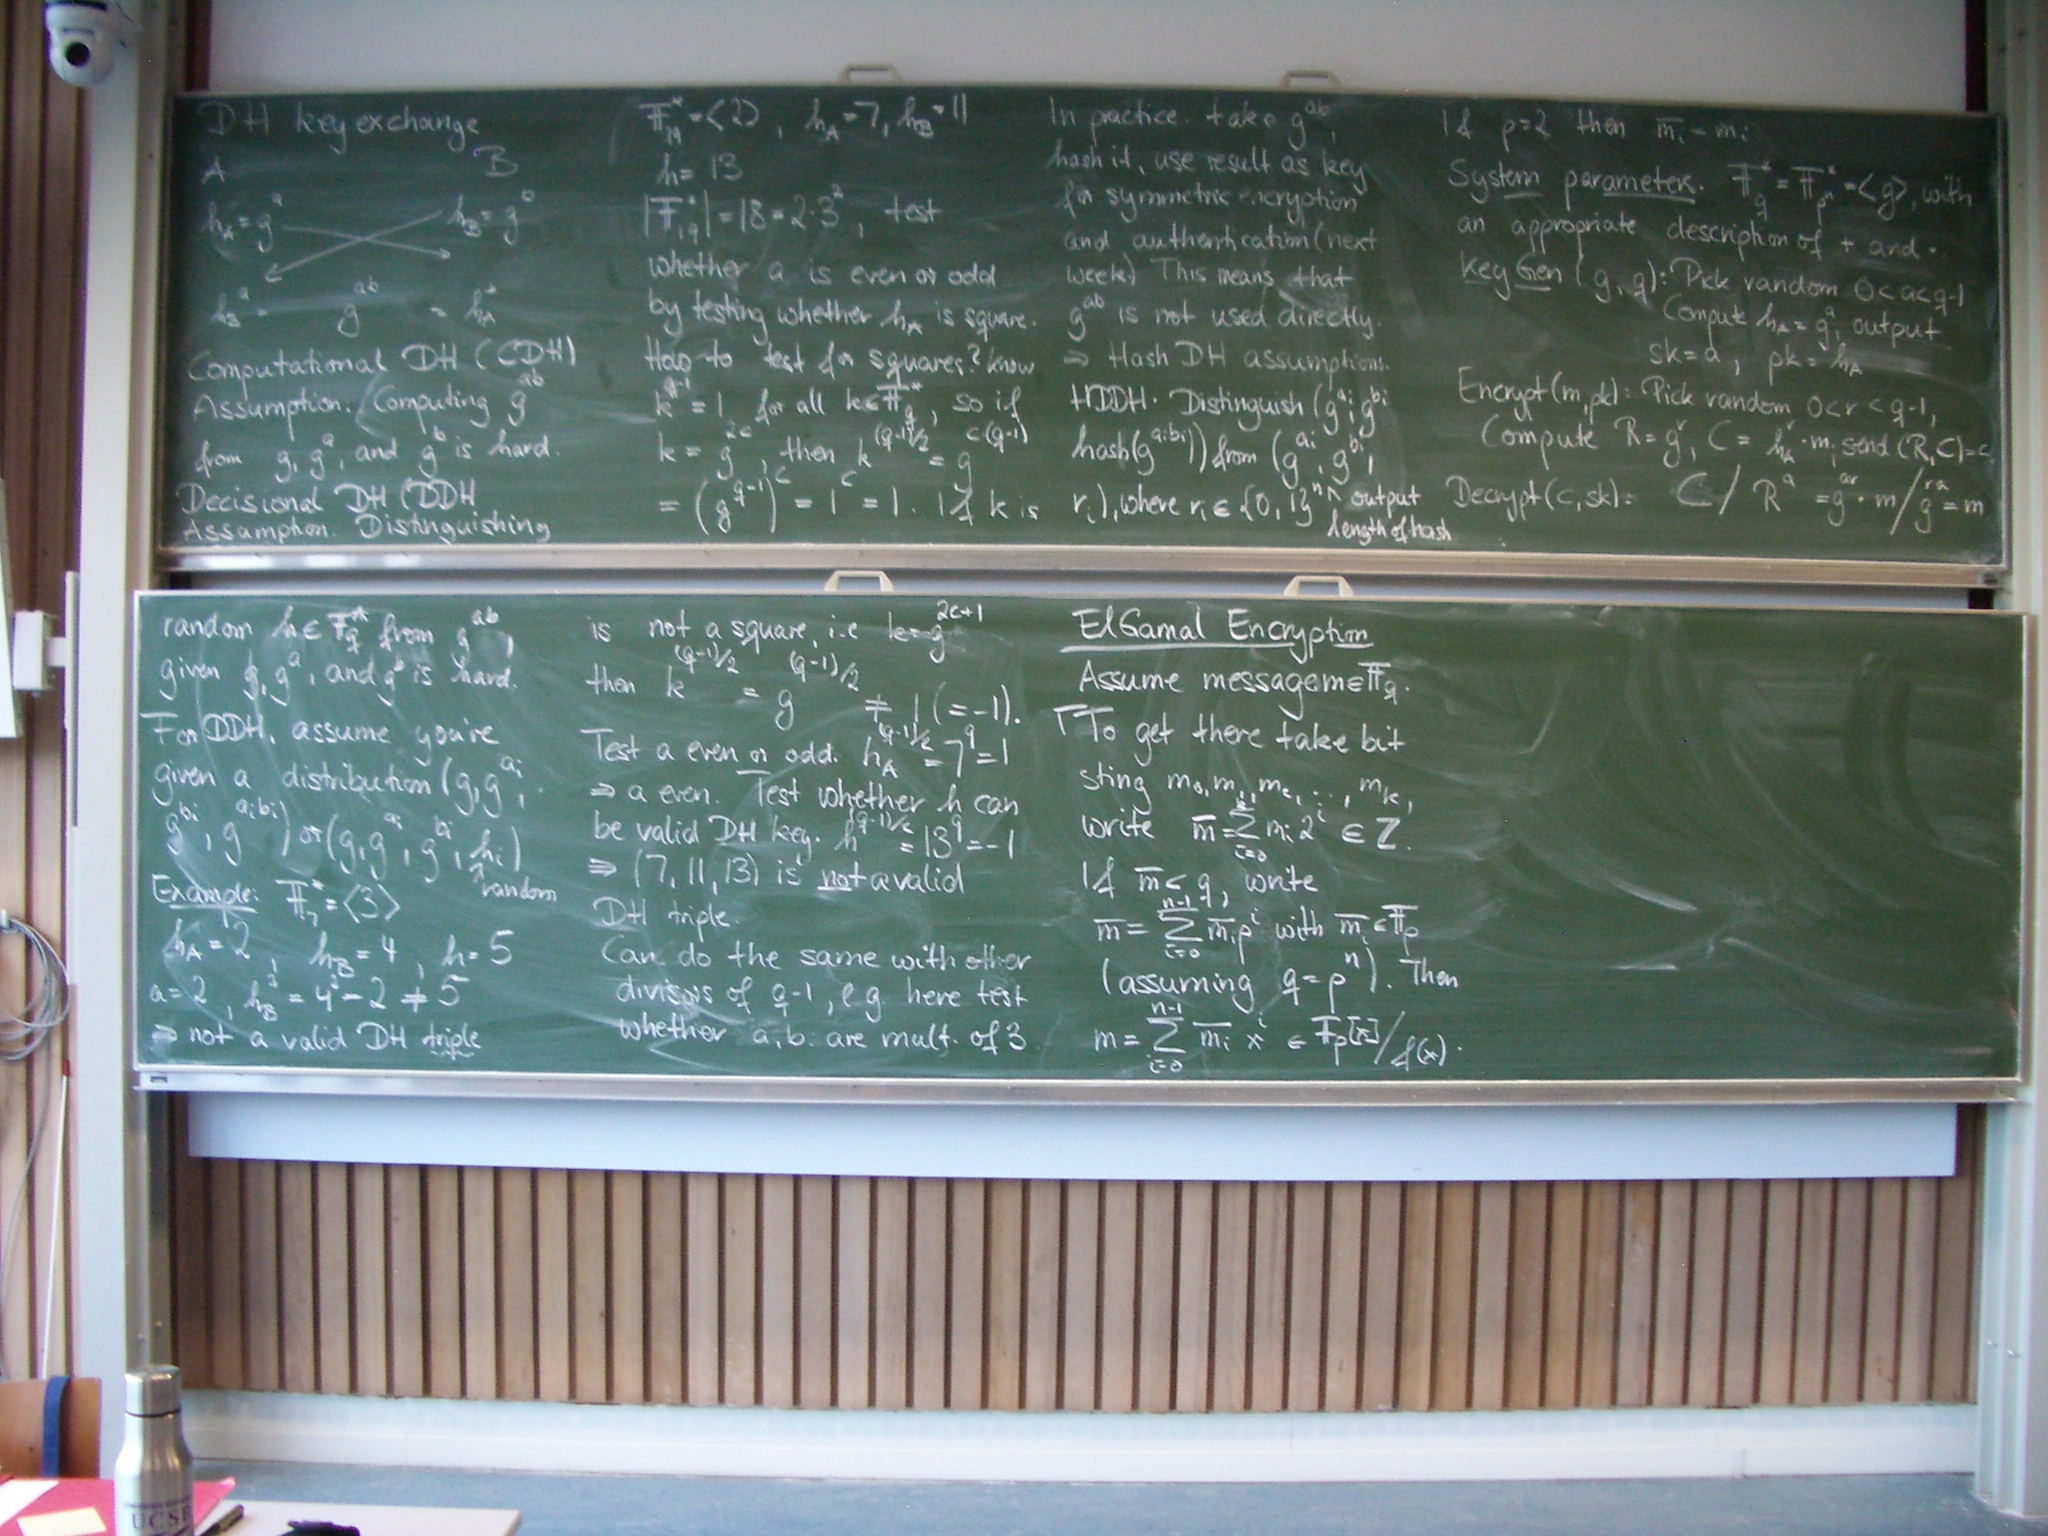 DH key exchange
A B
h_A = g^a h_B = g^b
h_B^a = g^{ab} = h_A^b
Computational DH (CDH)
Assumption. Computing g^{ab}
from g, g^a, and g^b is hard.
Decisional DH (DDH
Assumption. Distinguishing
random h ∈ F_q^* from g^{ab},
given g, g^a, and g^b is hard.
For DDH, assume you're
given a distribution (g, g^{ai},
g^{bi}, g^{aibi}) or (g, g^{ai}, g^{bi}, h_i)
random
Example: F_7^* = <3>
h_A = 2, h_B = 4, h = 5
a = 2, h_B^2 = 4^2 = 2 ≠ 5
⇒ not a valid DH triple
F_19^* = <2>, h_A = 7, h_B = 11
h = 13
|F_19^*| = 18 = 2·3^2, test
whether a is even or odd
by testing whether h_A is square.
How to test for squares? know
k^{q-1} = 1 for all k ∈ F_q^*, so if
k = g^{2c}, then k^{(q-1)/2} = g^{c(q-1)}
= (g^{q-1})^c = 1^c = 1. If k is
is not a square, i.e k = g^{2c+1}
then k^{(q-1)/2} = g^{(q-1)/2} ≠ 1 (= -1).
Test a even or odd. h_A^{(q-1)/2} = 7^9 = 1
⇒ a even. Test whether h can
be valid DH key. h^{(q-1)/2} = 13^9 = -1
⇒ (7, 11, 13) is not a valid
DH triple.
Can do the same with other
divisors of q-1, e.g. here test
whether a, b are mult. of 3
In practice take g^{ab},
hash it, use result as key
for symmetric encryption
and authentication (next
week) This means that
g^{ab} is not used directly.
⇒ Hash DH assumptions.
HDDH. Distinguish (g^{ai}, g^{bi},
hash(g^{aibi})) from (g^{ai}, g^{bi},
r_i), where r_i ∈ {0, 1}^n output
length of hash
ElGamal Encryption
Assume message m ∈ F_q.
To get there take bit
sting m_0, m_1, m_2, ..., m_k,
write m̄ = Σ_{i=0}^k m_i 2^i ∈ Z.
If m̄ < q, write
m̄ = Σ_{i=0}^{n-1} m̄_i p^i with m̄_i ∈ F_p
(assuming q = p^n). Then
m = Σ_{i=0}^{n-1} m̄_i x^i ∈ F_p[x]/f(x).
If p=2 then m̄_i = m_i
System parameters. F_q^* = F_{p^n}^* = <g>, with
an appropriate description of + and ·
KeyGen (g, q): Pick random 0<a<q-1
Compute h_A = g^a, output
sk = a, pk = h_A
Encrypt(m, pk): Pick random 0<r<q-1,
Compute R = g^r, C = h_A^r · m, send (R, C) = c
Decrypt(c, sk): C / R^a = g^{ar} · m / g^{ra} = m
UCSB